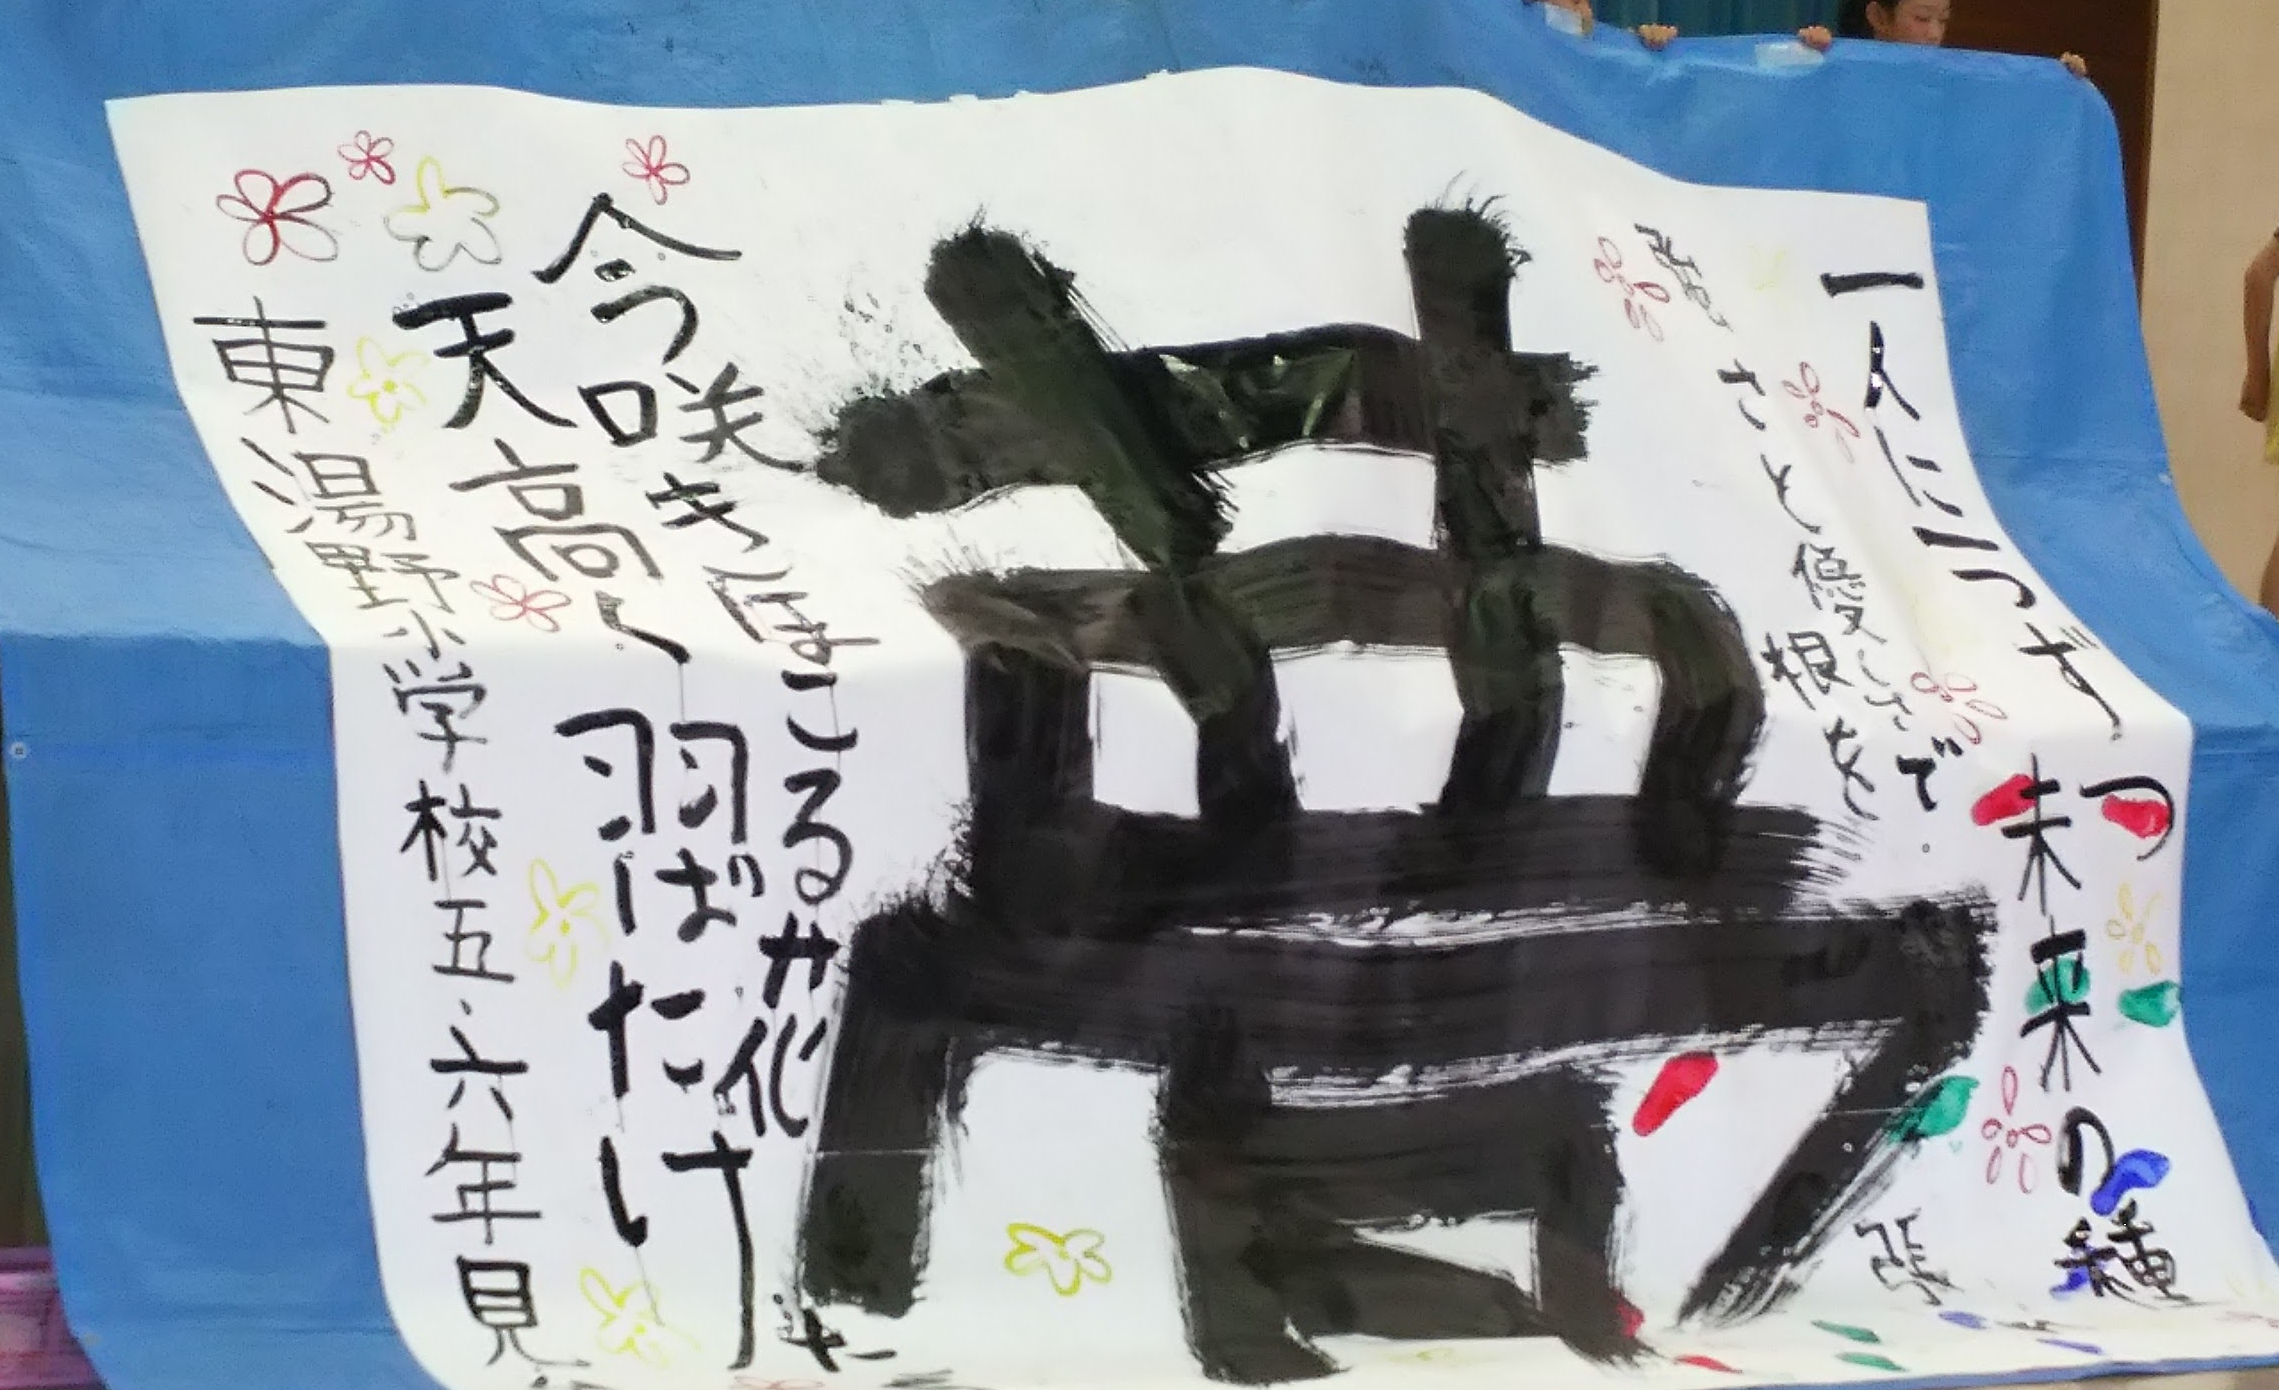 一人に一つずつ
未来の種
強さと優しさで
根を張
夢
今咲きほこる花
天高く羽ばたけ
東湯野小学校五・六年見